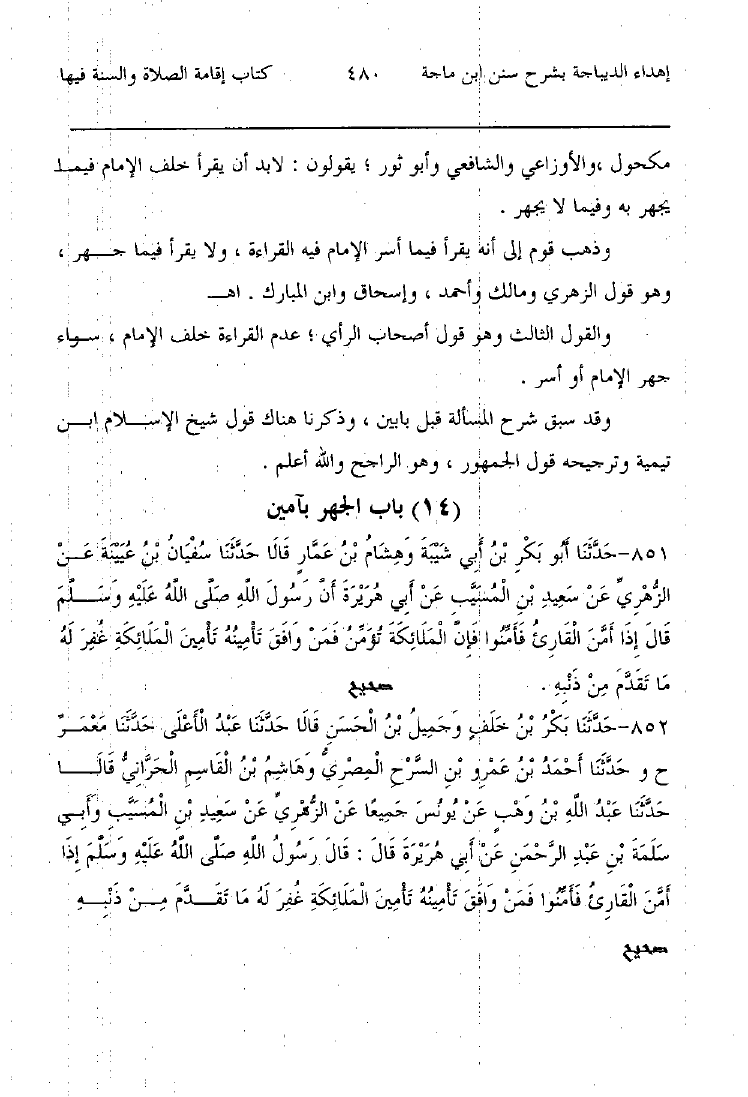 إهداء الديباجة بشرح سنن ابن ماجة ٤٨٠ كتاب إقامة الصلاة والسنة فيها
مكحول ،والأوزاعي والشافعي وأبو ثور ؛ يقولون : لابد أن يقرأ خلف الإمام فيمـا
يجهر به وفيما لا يجهر .
وذهب قوم إلى أنه يقرأ فيما أسر الإمام فيه القراءة ، ولا يقرأ فيما جـــهر ،
وهو قول الزهري ومالك وأحمد ، وإسحاق وابن المبارك . اهـــ
والقول الثالث وهو قول أصحاب الرأي ؛ عدم القراءة خلف الإمام ، ســواء
جهر الإمام أو أسر .
وقد سبق شرح المسألة قبل بابين ، وذكرنا هناك قول شيخ الإســـلام ابـــن
تيمية وترجيحه قول الجمهور ، وهو الراجح والله أعلم .
(١٤) باب الجهر بآمين
٨٥١-حَدَّثَنَا أَبُو بَكْرِ بْنُ أَبِي شَيْبَةَ وَهِشَامُ بْنُ عَمَّارٍ قَالَا حَدَّثَنَا سُفْيَانُ بْنُ عُيَيْنَةَ عَـــنْ
الزُّهْرِيِّ عَنْ سَعِيدِ بْنِ الْمُسَيَّبِ عَنْ أَبِي هُرَيْرَةَ أَنَّ رَسُولَ اللَّهِ صَلَّى اللَّهُ عَلَيْهِ وَسَـــلَّمَ
قَالَ إِذَا أَمَّنَ الْقَارِئُ فَأَمِّنُوا فَإِنَّ الْمَلَائِكَةَ تُؤَمِّنُ فَمَنْ وَافَقَ تَأْمِينُهُ تَأْمِينَ الْمَلَائِكَةِ غُفِرَ لَهُ
مَا تَقَدَّمَ مِنْ ذَنْبِهِ . صحيح
٨٥٢-حَدَّثَنَا بَكْرُ بْنُ خَلَفٍ وَجَمِيلُ بْنُ الْحَسَنِ قَالَا حَدَّثَنَا عَبْدُ الْأَعْلَى حَدَّثَنَا مَعْمَـــرٌ
ح و حَدَّثَنَا أَحْمَدُ بْنُ عَمْرِو بْنِ السَّرْحِ الْمِصْرِيُّ وَهَاشِمُ بْنُ الْقَاسِمِ الْحَرَّانِيُّ قَالَـــا
حَدَّثَنَا عَبْدُ اللَّهِ بْنُ وَهْبٍ عَنْ يُونُسَ جَمِيعًا عَنْ الزُّهْرِيِّ عَنْ سَعِيدِ بْنِ الْمُسَيَّبِ وَأَبِي
سَلَمَةَ بْنِ عَبْدِ الرَّحْمَنِ عَنْ أَبِي هُرَيْرَةَ قَالَ : قَالَ رَسُولُ اللَّهِ صَلَّى اللَّهُ عَلَيْهِ وَسَلَّمَ إِذَا
أَمَّنَ الْقَارِئُ فَأَمِّنُوا فَمَنْ وَافَقَ تَأْمِينُهُ تَأْمِينَ الْمَلَائِكَةِ غُفِرَ لَهُ مَا تَقَـــدَّمَ مِـــنْ ذَنْبِـــهِ
صحيح